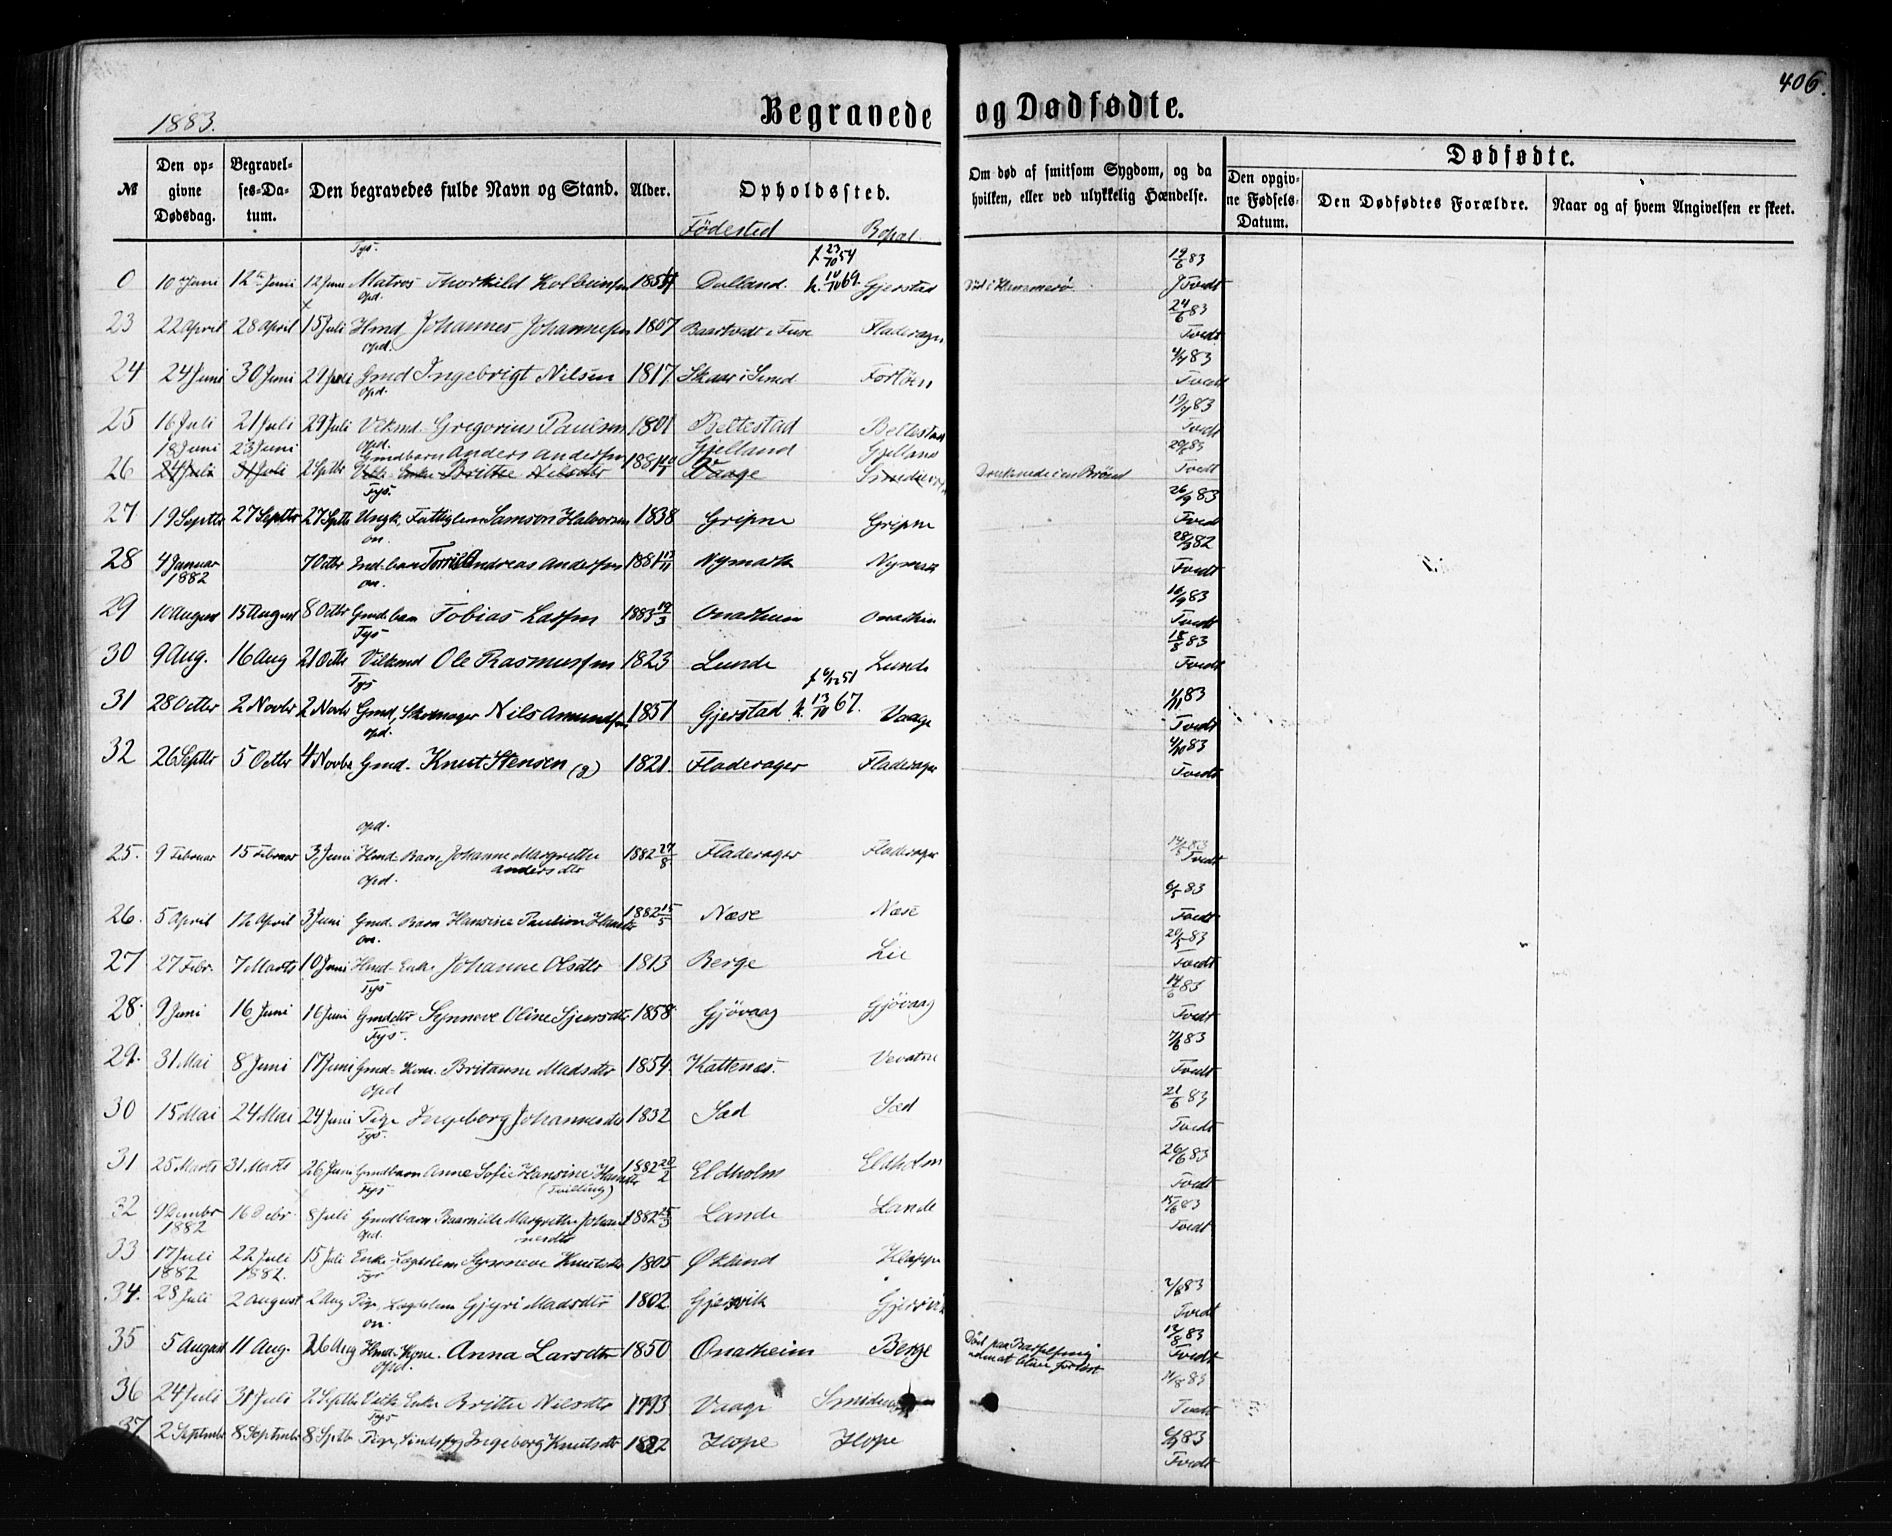 406.
1883.
Begravede og Dødfødte.
№ Den opgivne Dødsdag. Begravelses-Datum. Den begravedes fulde Navn og Stand. Alder. Opholdssted. Om død af smitsom Sygdom, og da hvilken, eller ved ulykkelig Hændelse. Dødfødte.
Den opgivne Fødsels-Datum. Den Dødfødtes Forældre. Naar og af hvem Angivelsen er skeet.
Fødested Bopæl.
Tys. f 23/10 54 19/6 83
0 10 Juni 12 Juni 12 Juni Matros Thorkild Kolbeinsen 1854 k. 10/10 69. Gjerstad Tvedt
opd. 24/6 83
23 22 April 28 April 15 Juli Hmd. Johannes Johannessen 1807 Fladerager Tvedt
opd. 4/7 83
24 24 Juni 30 Juni Gmd Ingebrigt Nilsen 1817 Skaar i Tvedt
opd. 19/7 83
25 16 Juli 21 Juli 29 Juli Gregorius Paulsen 1801 Beltestad Beltestad Tvedt
18 Juni 23 Juni opd. Gmdbarn Anders Andersen Gjelland Gjelland
26 24 Juli 31 Juli 2 Septbr Enke Britte Nilsdtr Vaage Tvedt
Tys. 26/9 83
27 19 Septbr 27 Septbr 27 Septbr Ungk. Fattiglem Samson Halvorsen 1838 Gripne Gripne Tvedt
on. 82
28 4 Januar 1882 7 Octbr Andreas Andersen 1881 Nymark Nymark Tvedt
on. 83
29 10 August 15 August 8 Octbr Gmdbarn Tobias Larsen 1883 19/3 Onarheim Onarheim Tvedt
Tys 18/8 83
30 9 Aug. 16 Aug 21 Octbr Ole Rasmussen 1823 Lunde Lunde Tvedt
Tys 83
31 28 Octbr 2 Novbr 2 Novbr Gmd, Skomager Nils Amundsen 1851 Gjerstad k. 13/10 67. Vaage Tvedt
opd. 4/10 83
32 26 Septbr 5 Octbr 4 Novbr Gmd. Knut Stensen (g) 1821. Fladerager Fladerager Tvedt
opd.
25. 9 Februar 15 Februar 3 Juni Hmd. Barn Johanne Margrethe Andersdtr 1882 27/8 Fladerager Fladerager Tvedt
opd. 83
26. 5 April 12 April 3 Juni Gmd. Barn Hansine 1882 15/5 Næse Næse Tvedt
on. 83
27 27 Febr. 7 Marts 10 Juni Hmd. Enke Johanne Olsdtr 1813 Berge Lie Tvedt
Tys 14/6 83
28. 9 Juni 16 Juni 16 Juni Gmddtr Synneve Oline Sjursdtr 1858 Gjøvaag Gjøvaag Tvedt
Tys. 7/6 83
29. 31 Mai 8 Juni 17 Juni Gmd. Kone Britanne Madsdtr 1854. Kattenes. Tvedt
opd 21/6 83
30 15 Mai 24 Mai 24 Juni Pige Ingeborg Johannesdtr 1832 Sæd Sæd Tvedt
Tys. 26/6 83
31 25 Marts 31 Marts 26 Juni Gmdbarn Anne Sofie Hansine Hansdtr (Tvilling) 1882 20/2 Eldholm Eldholm Tvedt
Tys 15/6 83
32 9 Decmbr 1882 16 Debr. 8 Juli Gmdbarn Margrethe Johannesdtr 1882 25/3 Lande Lande Tvedt
opd.
33 17 Juli 1882 22 Juli 1882. 15 Juli Enke Lægdslem Synneve Knutsdtr 1805 Økland Kleppe
Tys 2/8 83
34. 28 Juli 2 August 2 Aug Pige, Lægdslem Gjyri Madsdtr 1802 Gjersvik Gjersvik Tvedt
on. 12/8 83
35 5 August 11 Aug. 26 Aug Hmd. Kone. Anna Larsdtr 1850 Onarheim Berge Død paa Barselseng uden at blive forløst Tvedt
opd. 83
36 24 Juli 31 Juli 2 Septbr Enke Britte Nilsdtr 1793 Vaage Tvedt
Tys 83
37 2 Septembr 8 Septembr 8 Septbr Pige, Sindssyg Ingeborg Knutsdtr Hope Hope Tvedt